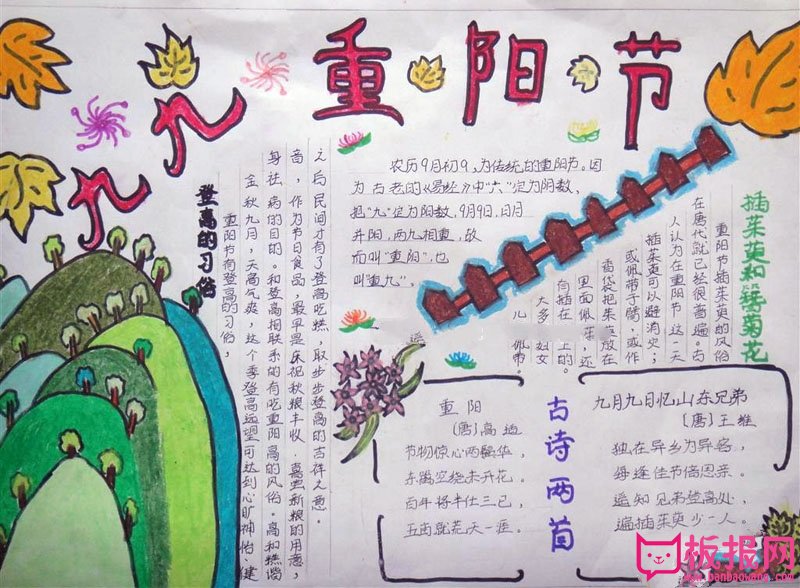 九九重阳节
登高的习俗
重阳节有登高的习俗,
金秋九月,天高气爽,这个季登高远望可达到心旷神怡 健
身祛病的目的。和登高相联系的有吃重阳高的风俗。高和糕谐
音,作为节日食品,最早是庆祝秋粮丰收、喜尝新粮的用意,
之后民间才有了登高吃糕,取步步登高的吉祥之意。
农历9月初9,为传统的重阳节。因
为古老的《易经》中“六”定为阴数,
把“九”定为阳数,9月9日,日月
并阳,两九相重,故
而叫“重阳”,也
叫“重九”。
插茱萸和簪菊花
重阳节插茱萸的风俗
在唐代就已经很普遍。古
人认为在重阳节 这一天
插茱萸可以避消灾;
或佩带于臂,或作
香袋把茱 放在
里面佩 , 还
有插在 上的。
大多 妇女
儿 佩带。
古诗两首
重阳
(唐)高适
节物惊心两鬓华,
东篱空绕未开花。
百年将半仕三已,
五亩就荒天一涯。
九月九日忆山东兄弟
〔唐〕王维
独在异乡为异客,
每逢佳节倍思亲。
遥知兄弟登高处,
遍插茱萸少一人。
板报网
www.banbaowang.com